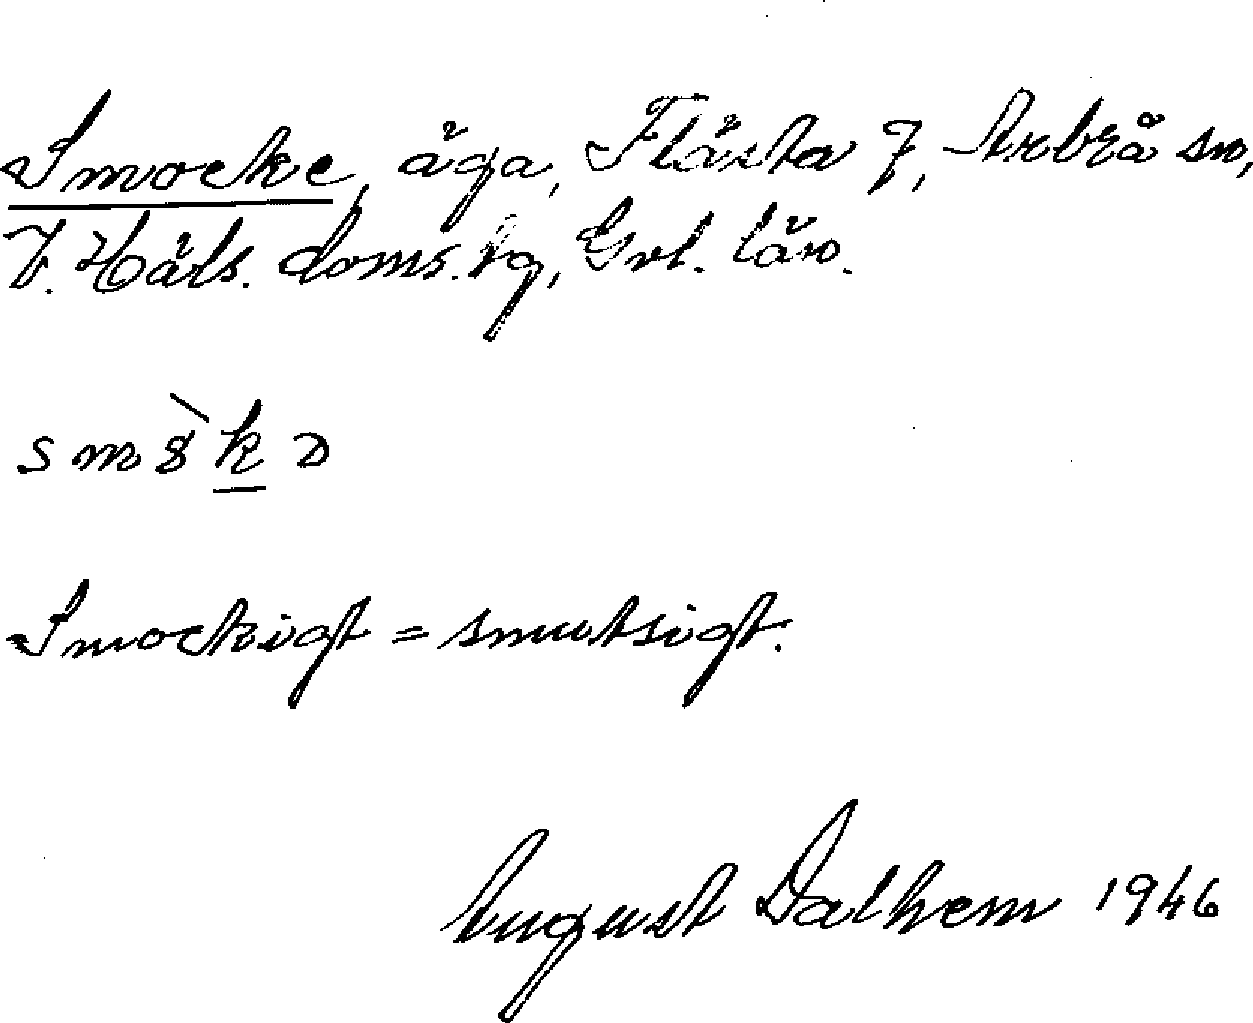 Smocke, äga, Flästa 7, Arbrå sn,
V. Häls. doms.hg, Gvl. län.
Smockigt = smutsigt.
August Dalhem 1946